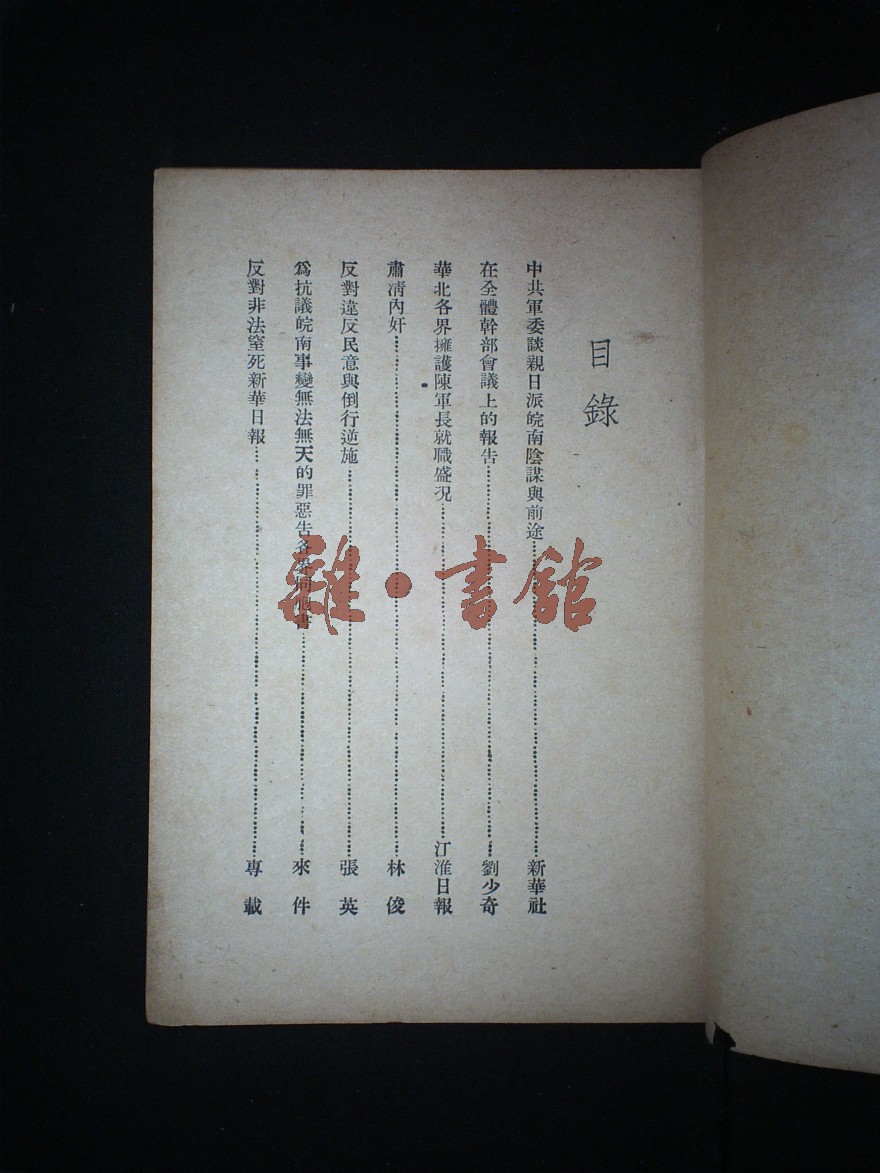 目錄
中共軍委談親日派皖南陰謀與前途…………新華社
在全體幹部會議上的報告…………劉少奇
華北各界擁護陳軍長就職盛況…………江淮日報
肅清內奸…………林俊
反對違反民意與倒行逆施…………張英
為抗議皖南事變無法無天的罪惡吿各界同胞書…………來件
反對非法窒死新華日報…………專載
雜·書館